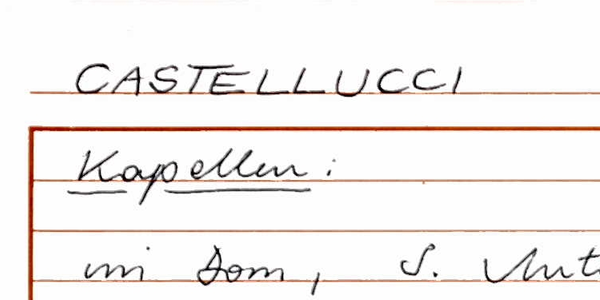 CASTELLUCCI
Kapellen:
im Dom, S. Ant